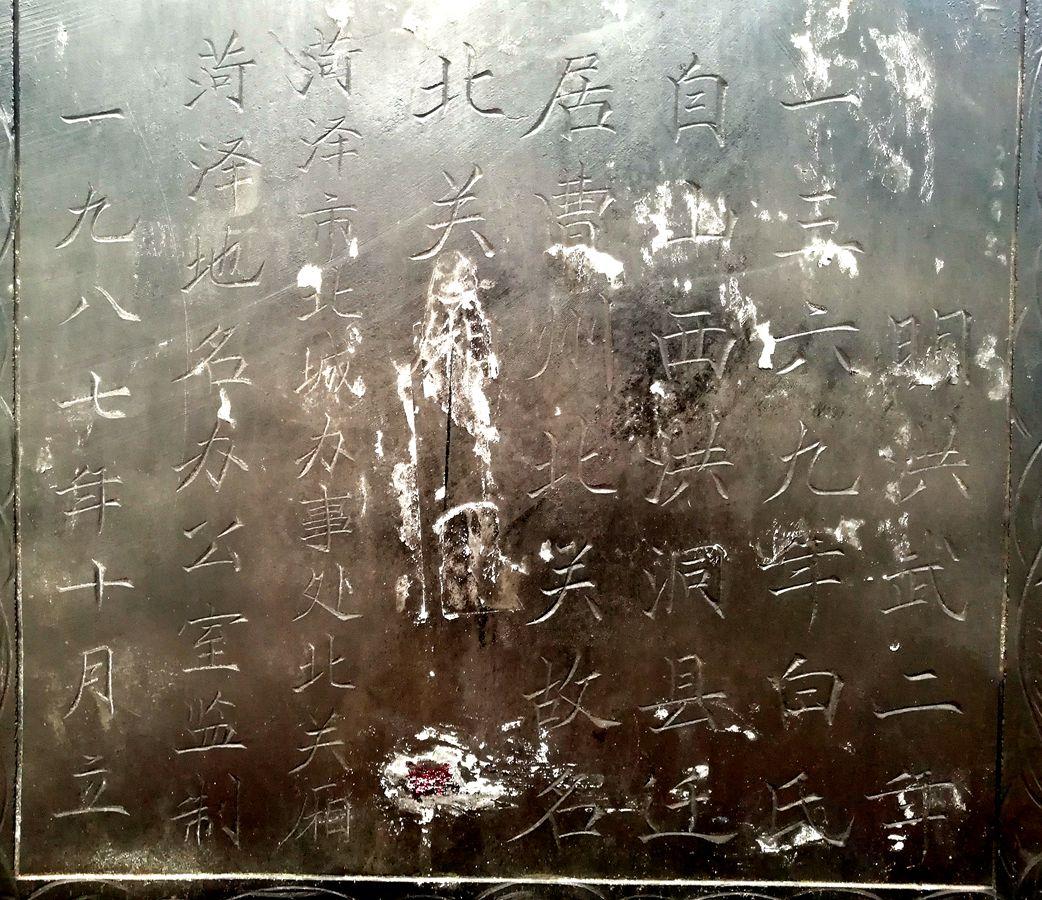 明洪武二年
一三六九年白氏
自山西洪洞县迁
居曹州北关故名
北关
菏泽市北城办事处北关厢
菏泽地名办公室监制
一九八七年十月立